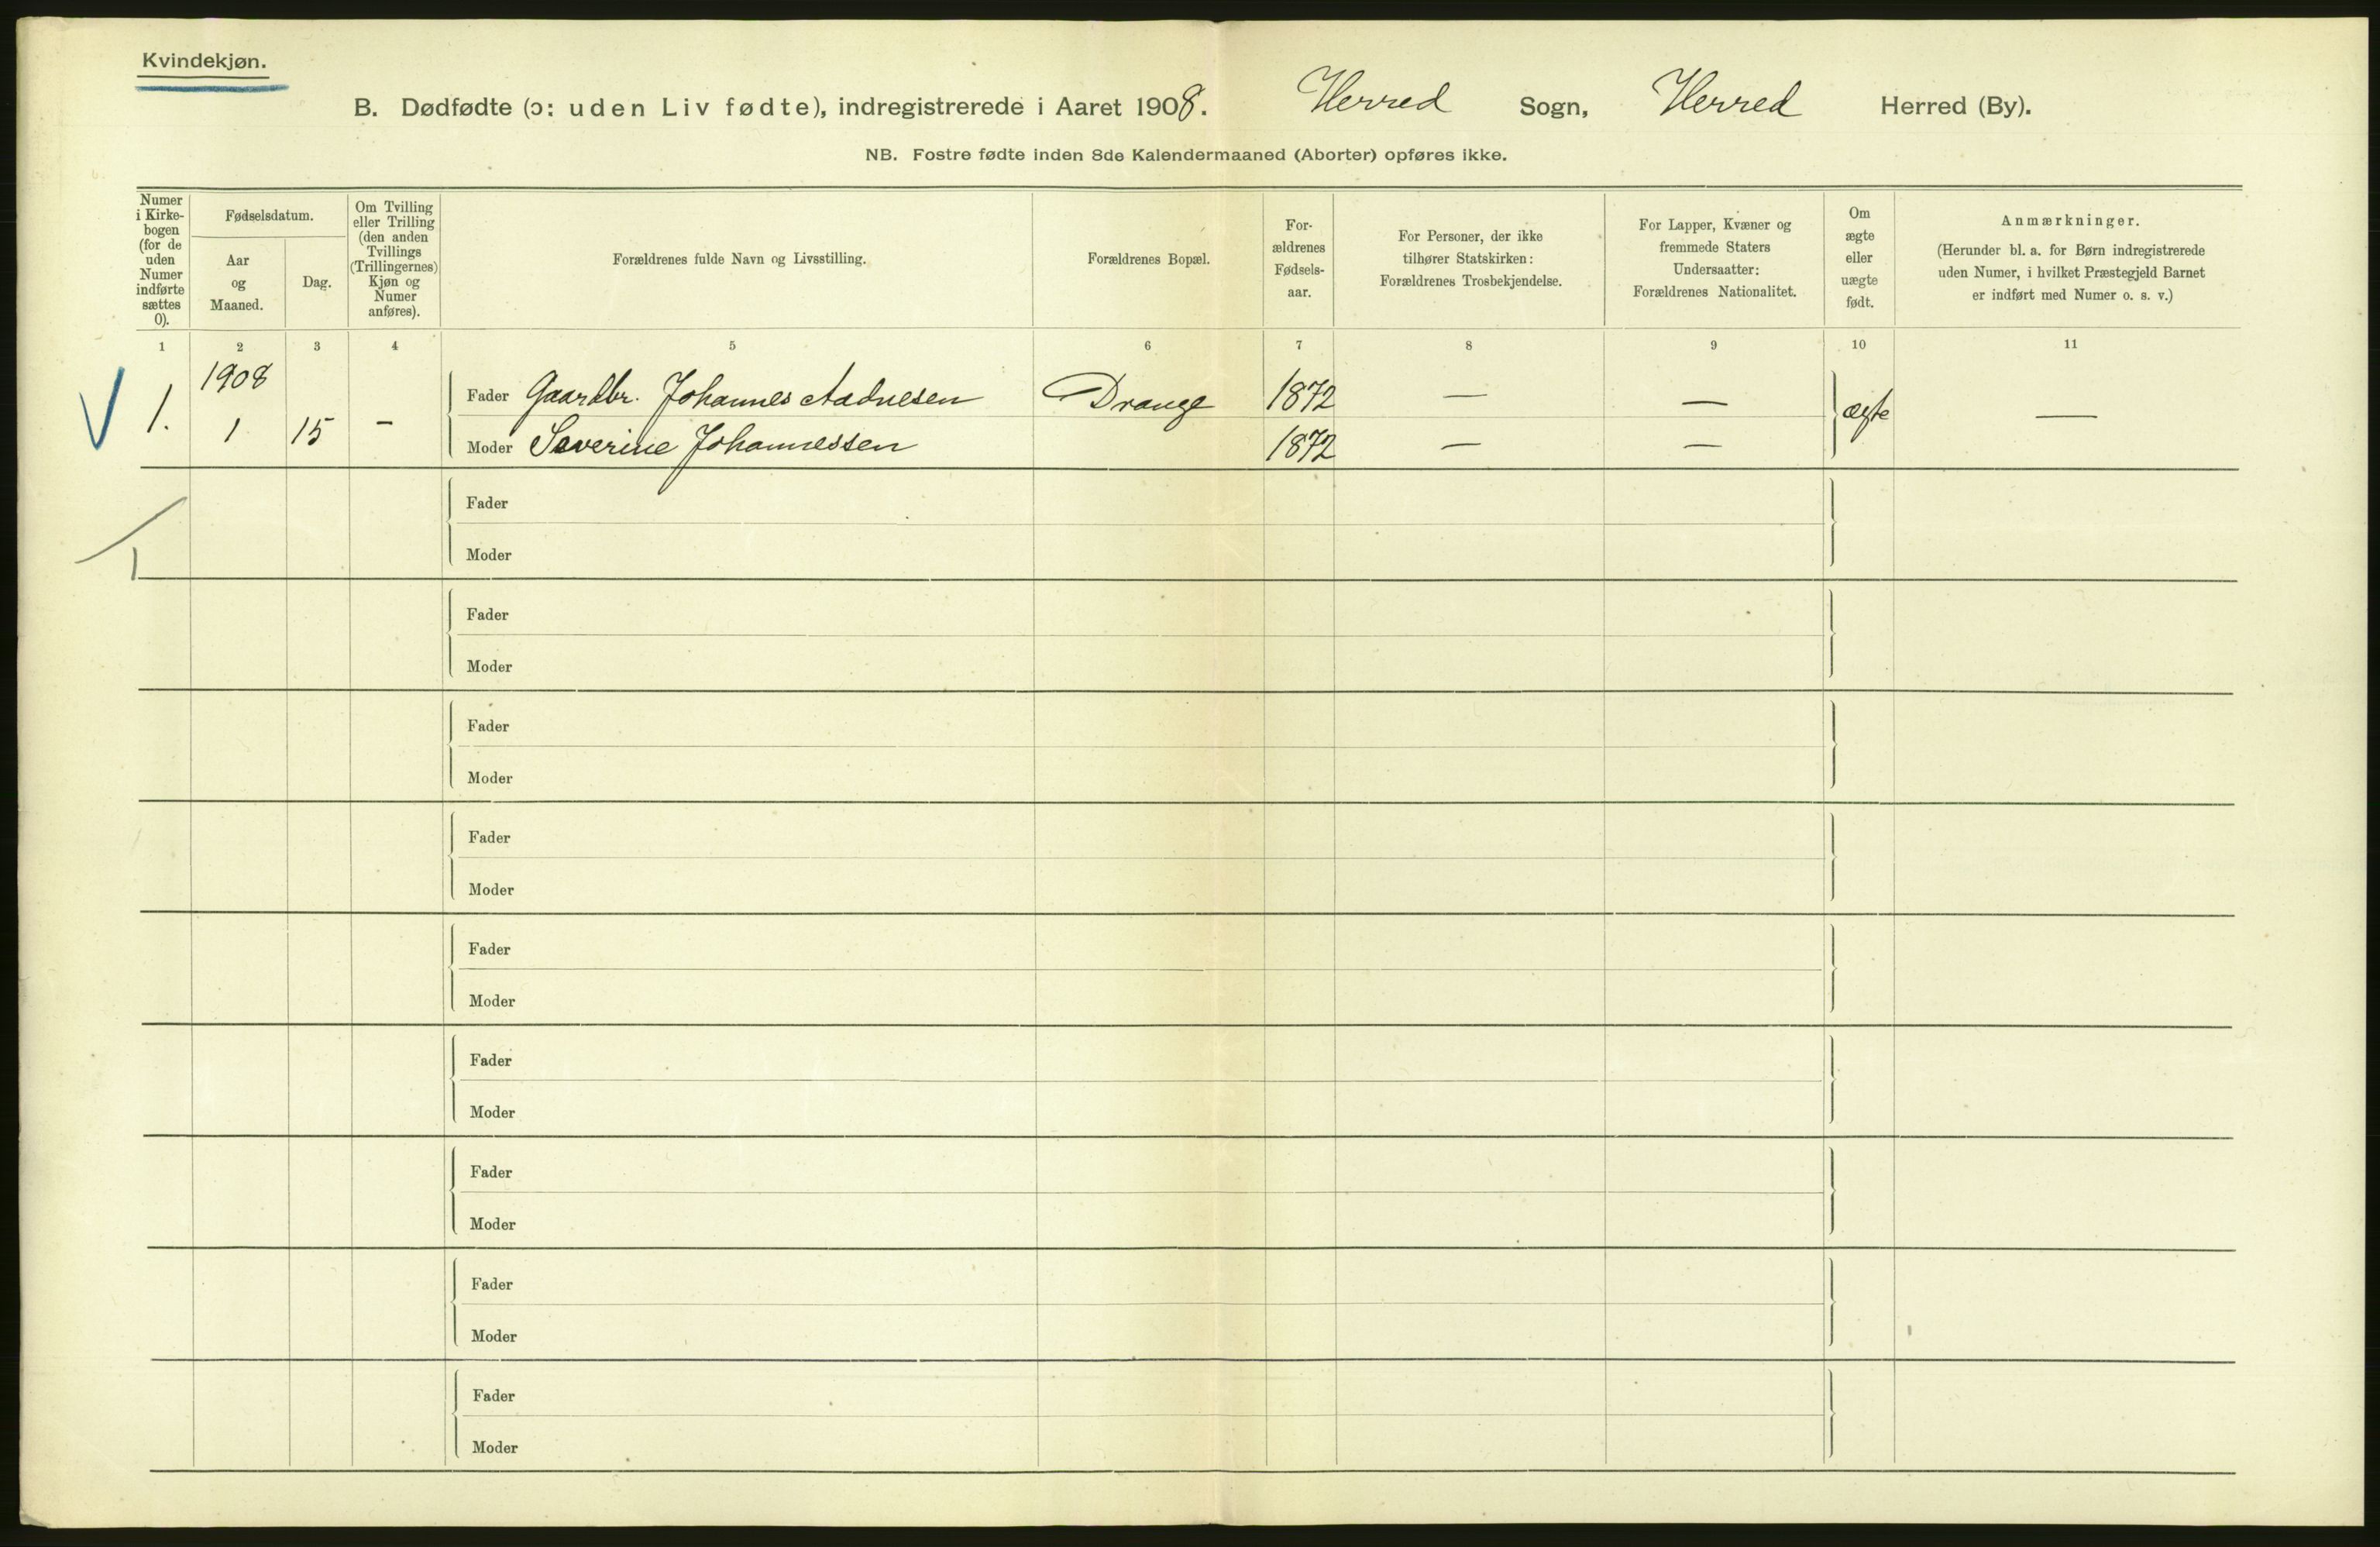 Kvindekjøn.
B. Dødfødte (ɔ: uden Liv fødte), indregistrerede i Aaret 1908. Herred Sogn, Herred Herred (By).
NB. Fostre fødte inden 8de Kalendermaaned (Aborter) opføres ikke.
Numer
i Kirke-
bogen
(for de
uden
Numer
indførte
sættes
0).
Fødselsdatum.
Aar
og
Maaned.
Dag.
Om Tvilling
eller Trilling
(den anden
Tvillings
(Trillingernes)
Kjøn og
Numer
anføres).
Forældrenes fulde Navn og Livsstilling.
Forældrenes Bopæl.
For-
ældrenes
Fødsels-
aar.
For Personer, der ikke
tilhører Statskirken:
Forældrenes Trosbekjendelse.
For Lapper, Kvæner og
fremmede Staters
Undersaatter:
Forældrenes Nationalitet.
Om
ægte
eller
uægte
født.
Anmærkninger.
(Herunder bl. a. for Børn indregistrerede
uden Numer, i hvilket Præstegjeld Barnet
er indført med Numer o. s. v.)
1 2 3 4 5 6 7 8 9 10 11
1908
1. Fader Gaardbr. Johannes Aadnesen Drange 1872 — — ægte —
1 15 - Moder Severine Johannessen 1872 — —
Fader
Moder
1
Fader
Moder
Fader
Moder
Fader
Moder
Fader
Moder
Fader
Moder
Fader
Moder
Fader
Moder
Fader
Moder